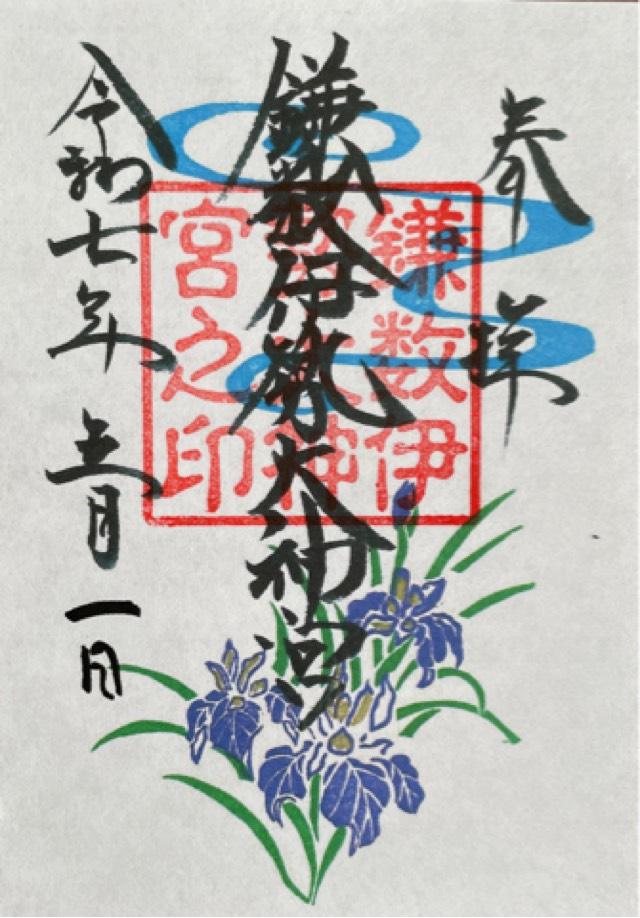 奉拝
鎌数伊勢大神宮
令和七年 五月 一日
鎌数伊
勢大神
宮之印